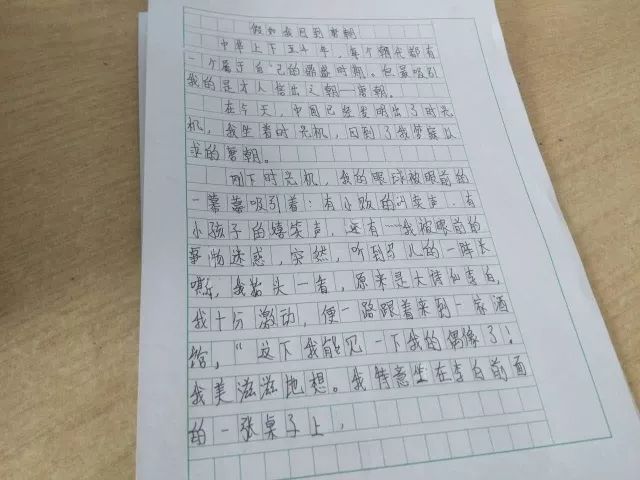 假如我回到唐朝
中华上下五千年，每个朝代都有
一个属于自己的鼎盛时期。但最吸引
我的是才人倍出之朝—唐朝。
在今天，中国已经发明出了时光
机，我坐着时光机，回到了我梦寐以
求的唐朝。
刚下时光机，我的眼球被眼前的
一幕幕吸引着：有小贩的叫卖声，有
小孩子的嬉笑声，还有……我被眼前的
事物迷惑，突然，听到马儿的一阵长
嘶，我抬头一看，原来是大诗仙李白，
我十分激动，便一路跟着来到一家酒
馆，“这下我能见一下我的偶像了！
我美滋滋地想。我特意坐在李白前面
的一张桌子上，